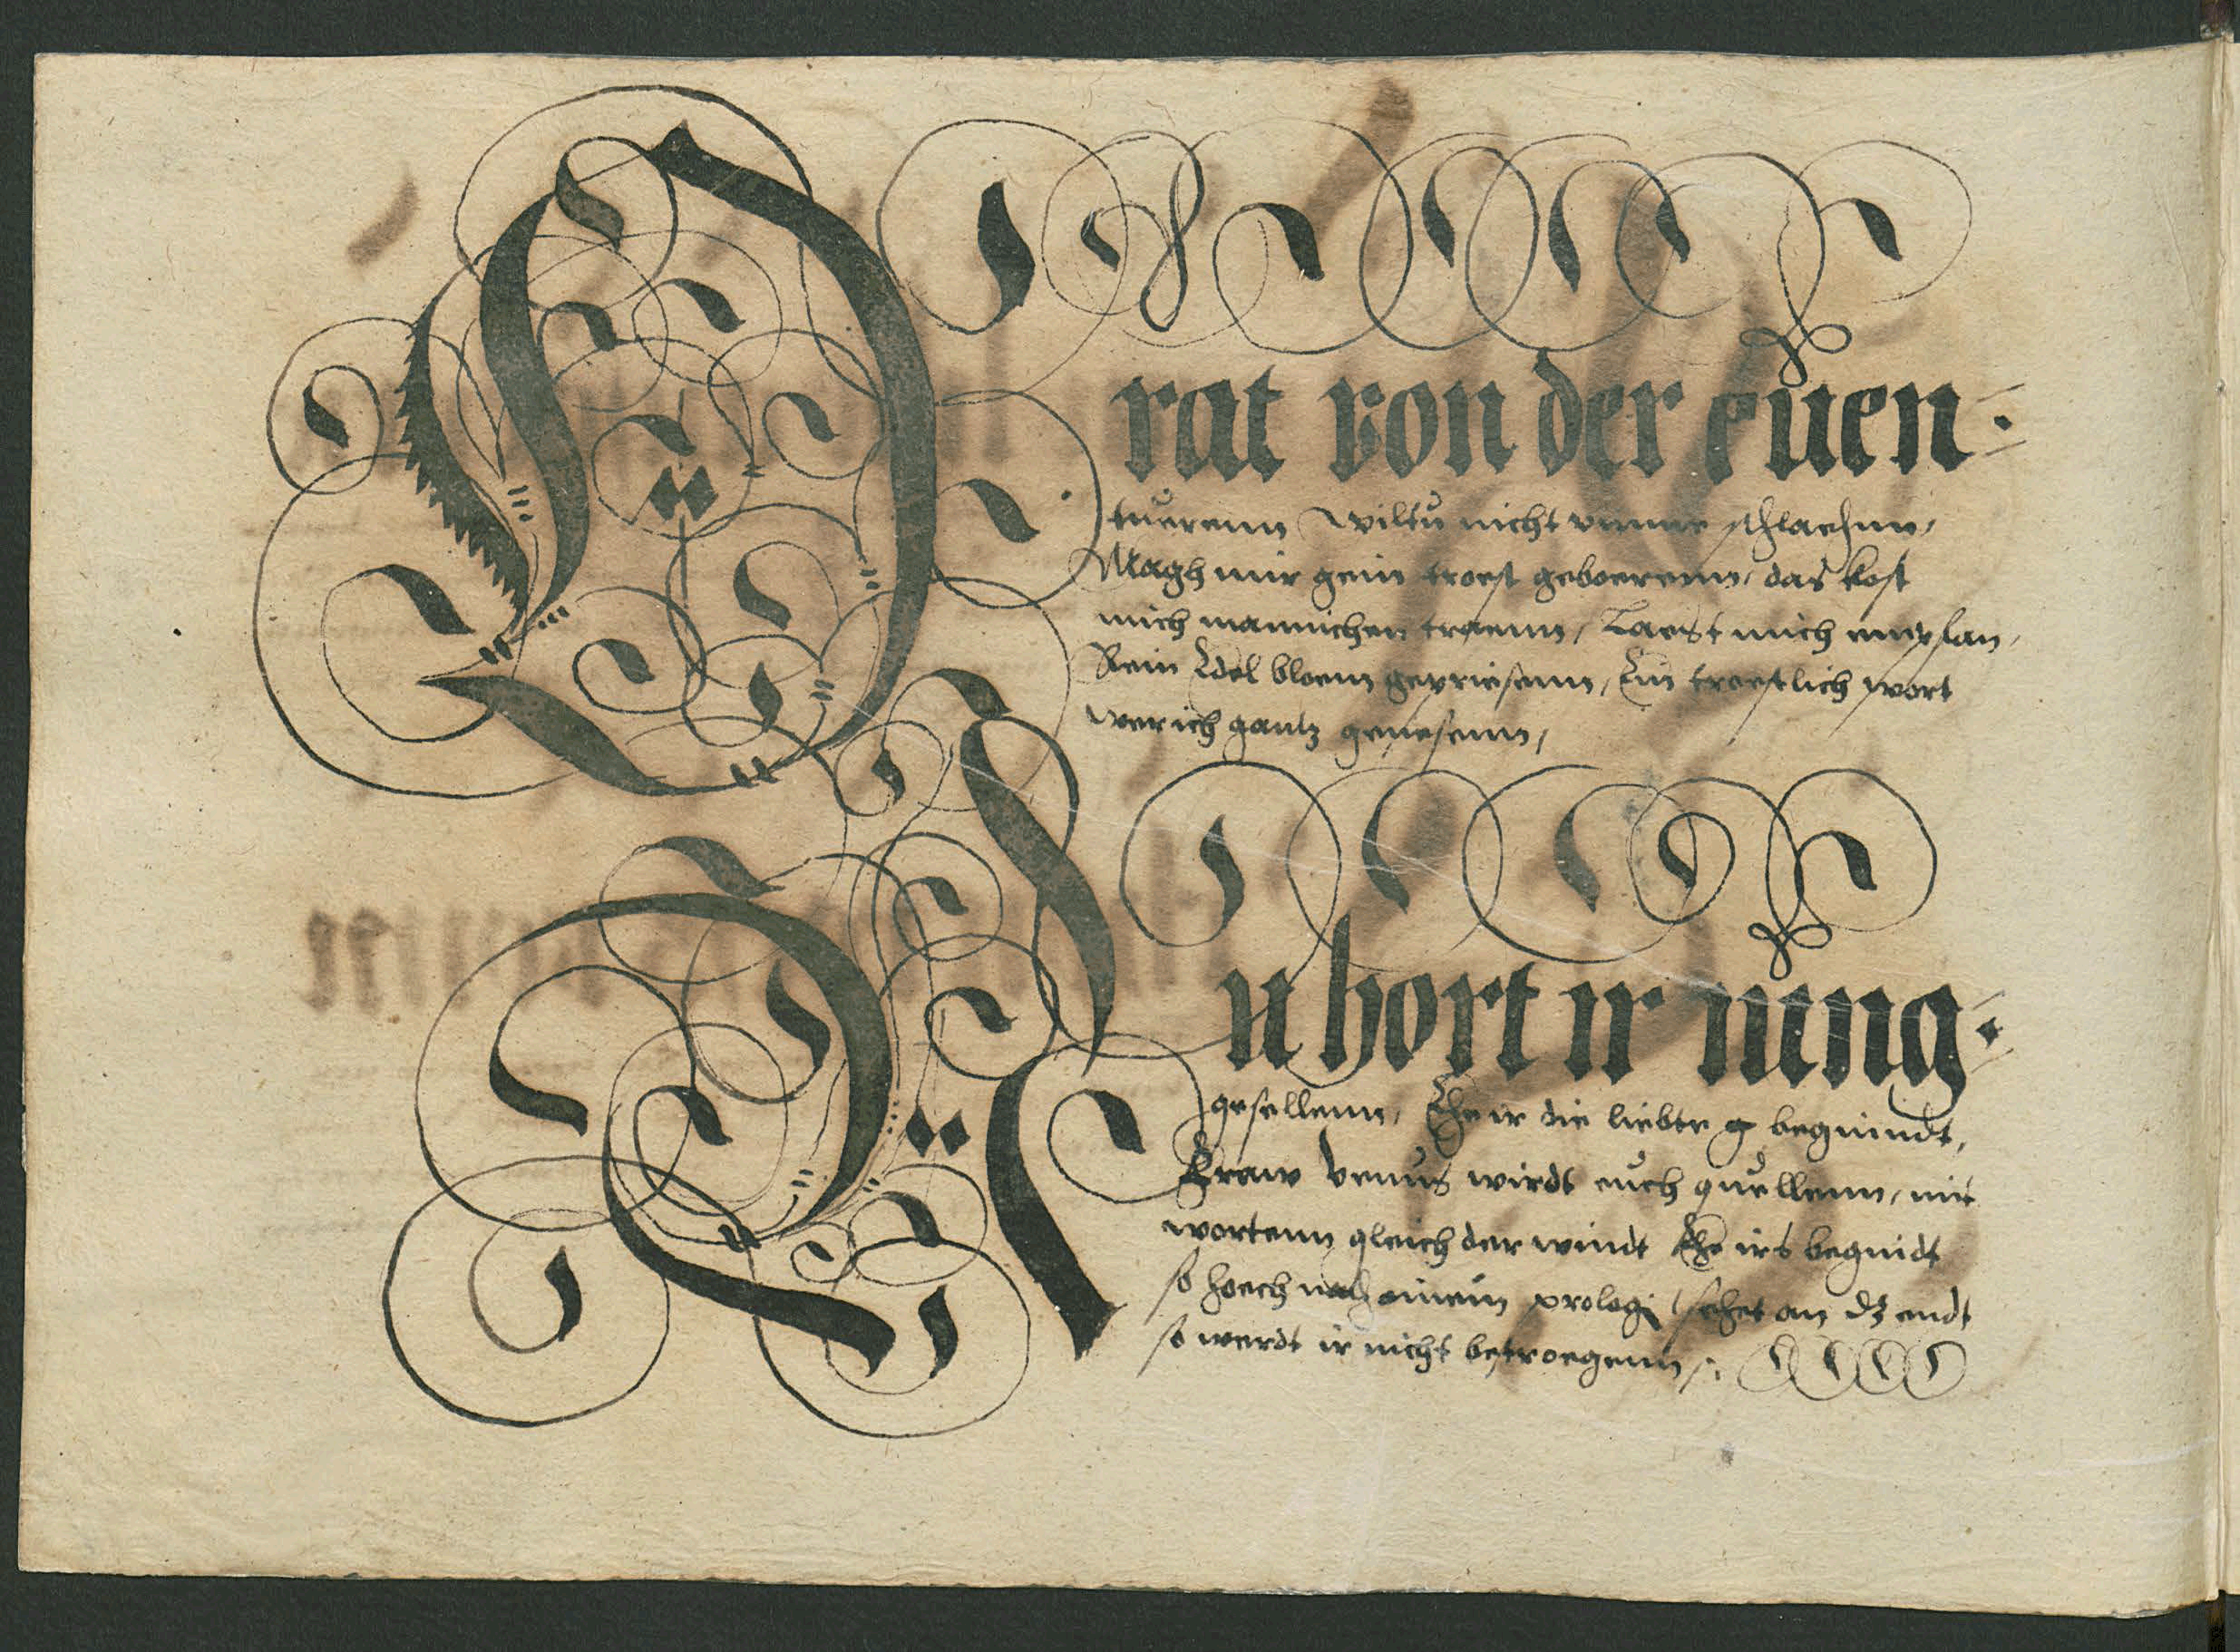 Drat von der euen:
tuerenn wiltu nicht schlaefnn,
Magh mir gein troest geboerenn, das kost
mich mannichen traenn, Laest mich
Rein Edel bloem gepriesenn, Ein troestlich wort
wer ich gantz genesenn,
Nu hort ir iung:
gesellenn, Ehe ir die liebte g beguindt,
Fraw venus wirdt euch quellenn, mit
wortenn gleich der windt Ehe irs beguidt
so hoech nach einem prologi sehet an dz endt
so werdt ir nicht betroegenn